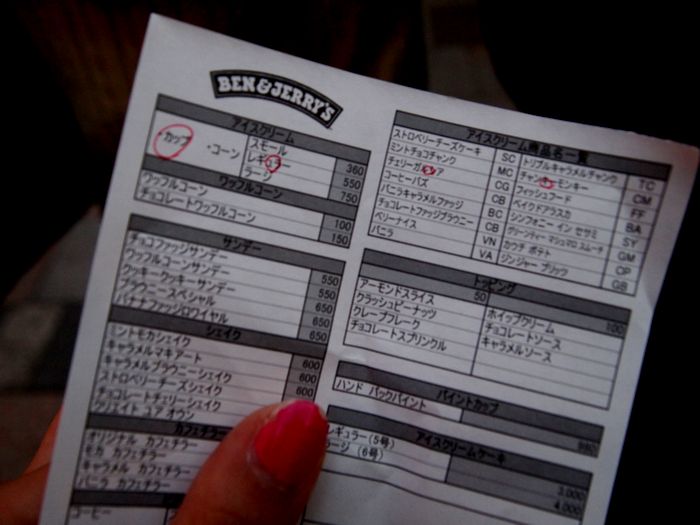 BEN & JERRY'S
アイスクリーム
・カップ ・コーン スモール 360
レギュラー 550
ラージ 750
ワッフルコーン
ワッフルコーン 100
チョコレートワッフルコーン 150
サンデー
チョコファッジサンデー 550
ワッフルコーンサンデー 550
クッキークッキーサンデー 650
ブラウニースペシャル 650
バナナファッジロワイヤル 650
シェイク
ミントモカシェイク 600
キャラメルマキアート 600
キャラメルブラウニーシェイク 600
ストロベリーチーズシェイク
チョコレートチェリーシェイク
クリエイト ユア オウン
カフェチラー
オリジナル カフェチラー
モカ カフェチラー
キャラメル カフェチラー
バニラ カフェチラー
コーヒー
アイスクリーム商品名一覧
ストロベリーチーズケーキ SC トリプルキャラメルチャンク TC
ミントチョコチャンク MC チャンキーモンキー CM
チェリーガルシア CG フィッシュフード FF
コーヒーバズ CB ベイクドアラスカ BA
バニラキャラメルファッジ BC シンフォニー イン セサミ SY
チョコレートファッジブラウニー CB グリーンティー マシュマロ スムーチ GM
ベリーナイス VN カウチ ポテト CP
バニラ VA ジンジャー ブリック GB
トッピング
50 100
アーモンドスライス ホイップクリーム
クラッシュピーナッツ チョコレートソース
クレープフレーク キャラメルソース
チョコレートスプリンクル
パイントカップ
ハンド パックパイント 980
アイスクリームケーキ
レギュラー(5号) 3,000
ラージ (6号) 4,000